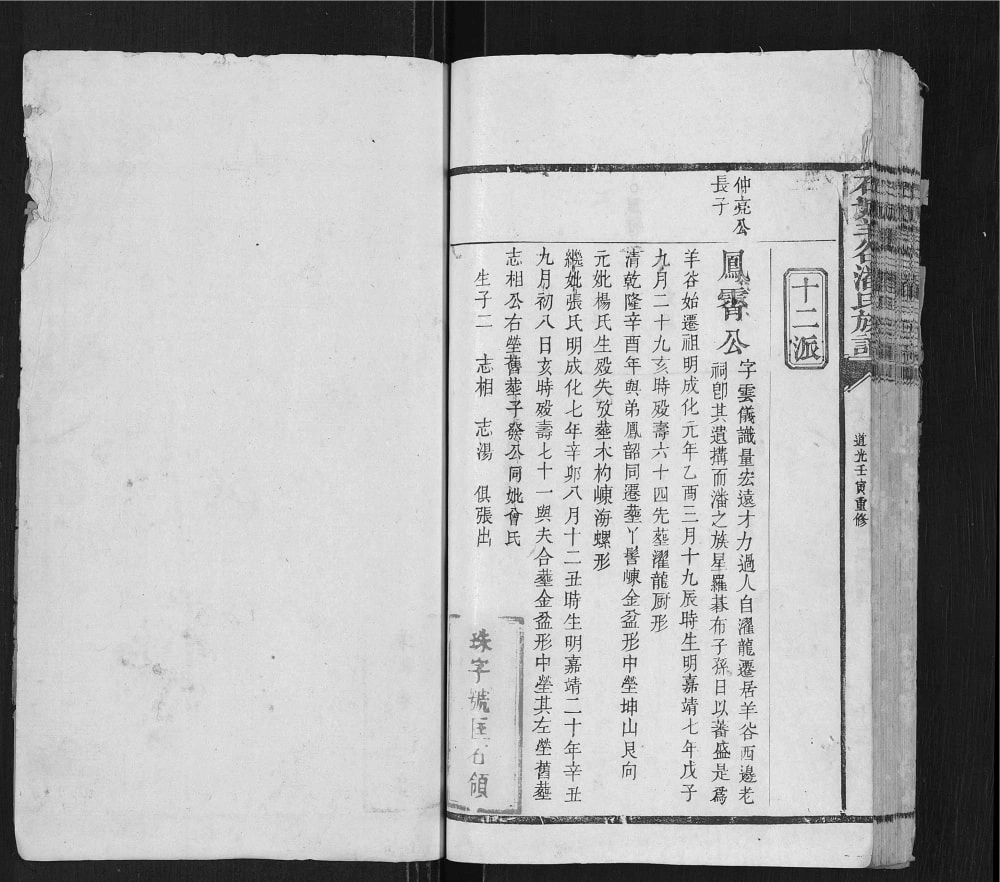 羊谷潘氏族譜
道光壬寅重修
十二派
仲亮公
長子
鳳霄公
字雲儀識量宏遠才力過人自濯龍遷居羊谷西邊老
祠卽其遺搆而潘之族星羅棊布子孫日以蕃盛是爲
羊谷始遷祖明成化元年乙酉三月十九辰時生明嘉靖七年戊子
九月二十九亥時殁壽六十四先葬濯龍厨形
清乾隆辛酉年與弟鳳韶同遷塟丫髻崠金盆形中塋坤山艮向
元妣楊氏生殁失攷塟木杓崠海螺形
繼妣張氏明成化七年辛卯八月十二丑時生明嘉靖二十年辛丑
九月初八日亥時殁壽七十一與夫合塟金盆形中塋其左塋舊塟
志相公右塋舊塟子發公同妣曾氏
生子二　志相　志湯　俱張出
珠字號匡九領